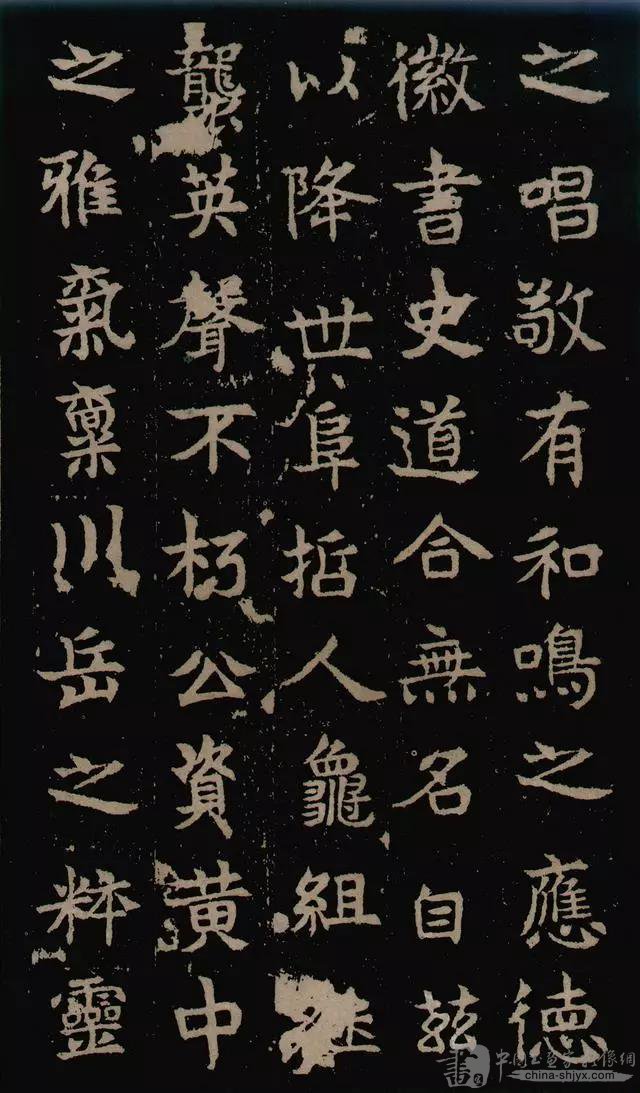 之唱敬有和鳴之應德
徽書史道合無名自茲
以降世阜哲人龜組継
襲英聲不朽公資黃中
之雅氣稟川岳之粋靈
china-shjyx.com